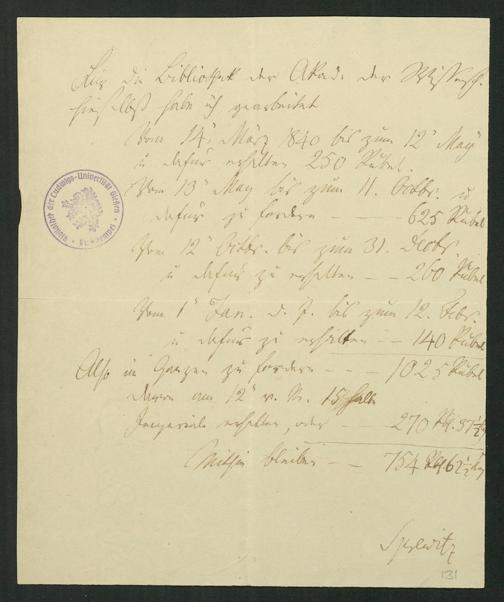 Für die Bibliothek der Akad. der Wissensch.
hieselbst habe ich gearbeitet
Vom 14n März 1840 bis zum 12n May
u dafür erhalten 250 Rubel.
Vom 13n May bis zum 11. Octbr. u
dafür zu fordern — — — 625 Rubel
Vom 12n Octbr. bis zum 31. Decbr.
u dafür zu erhalten — — 260 Rubel
Vom 1n Jan. d. J. bis zum 12. Febr.
u dafür zu erhalten — — 140 Rubel
Also im Ganzen zu fordern — — — 1025 Rubel
davon am 12n v. M. 15 halbe
Imperials erhalten, oder — — 270 37½
Mithin bleiben — — 754 62½
131
Bibliothek der Ludwigs-Universität Giessen